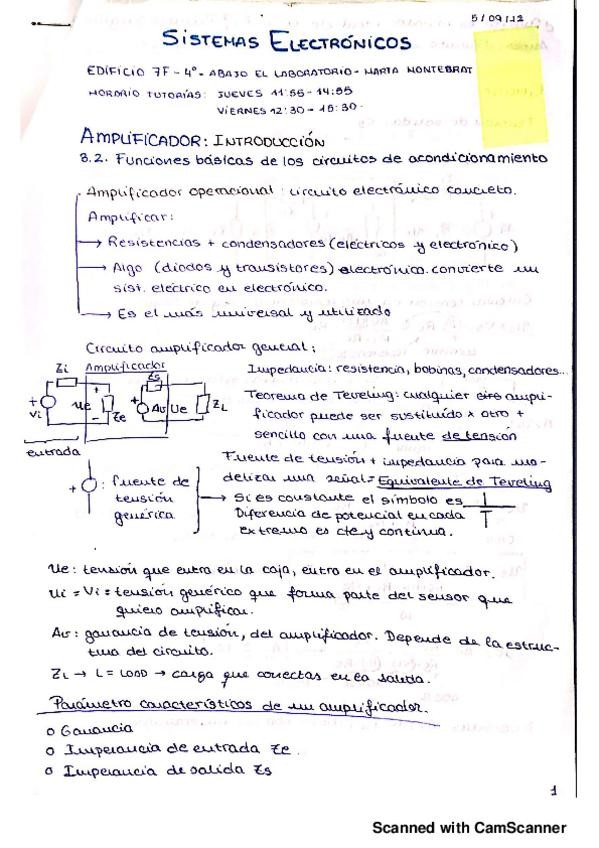 5/09/12
SISTEMAS ELECTRÓNICOS
EDIFICIO 7F - 4º - ABAJO EL LABORATORIO - MARTA MONTEBRAT
HORARIO TUTORÍAS: JUEVES 11:55 - 14:55
VIERNES 12:30 - 15:30
AMPLIFICADOR: INTRODUCCIÓN
3.2. Funciones básicas de los circuitos de acondicionamiento
Amplificador operacional: circuito electrónico concreto.
Amplificar:
→ Resistencias + condensadores (eléctricos y electrónico)
→ Algo (diodos y transistores) electrónico. convierte un
sist. eléctrico en electrónico.
→ Es el más universal y utilizado
Circuito amplificador general:
Zi Amplificador Zs
+ Vi Ue + - Ze + Av Ue ZL
entrada
Impedancia: resistencia, bobinas, condensadores...
Teorema de Teveling: cualquier ampli-
ficador puede ser sustituído x otro +
sencillo con una fuente de tensión
Fuente de tensión + impedancia para mo-
delizar una señal = Equivalente de Teveling
+ : fuente de
tensión
genérica
→ Si es constante el símbolo es
Diferencia de potencial en cada
extremo es cte y continua.
Ue: tensión que entra en la caja, entra en el amplificador.
Ui = Vi = tensión genérico que forma parte del sensor que
quiero amplificar.
Av: ganancia de tensión, del amplificador. Depende de la estruc-
tura del circuito.
ZL → L = LOAD → carga que conectas en la salida.
Parámetro característicos de un amplificador.
o Ganancia
o Imperancia de entrada Ze.
o Imperancia de salida Zs
1
Scanned with CamScanner